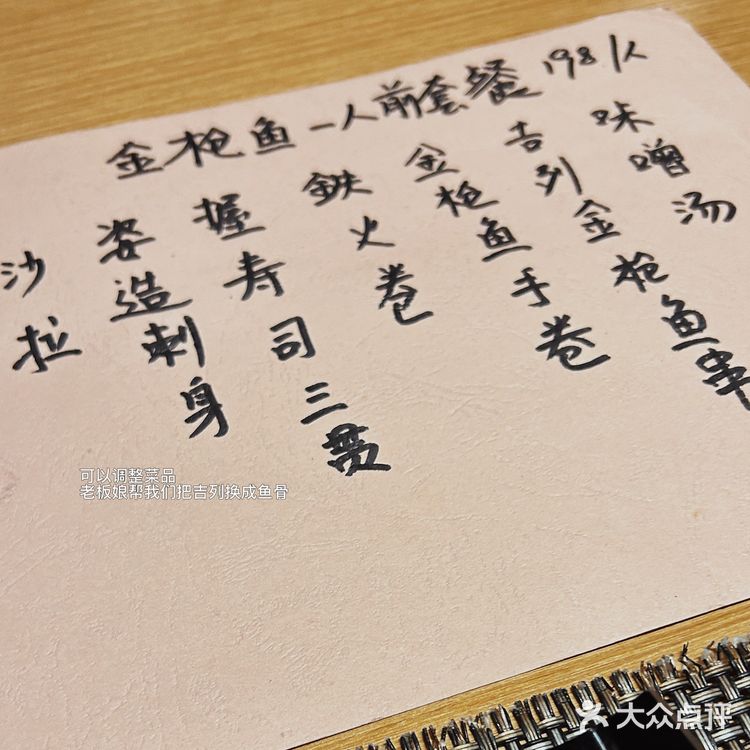 金枪鱼一人前套餐 198/人
沙拉
姿造刺身
握寿司三贯
鉄火卷
金枪鱼手卷
吉列金枪鱼串
味噌汤
可以调整菜品
老板娘帮我们把吉列换成鱼骨
大众点评